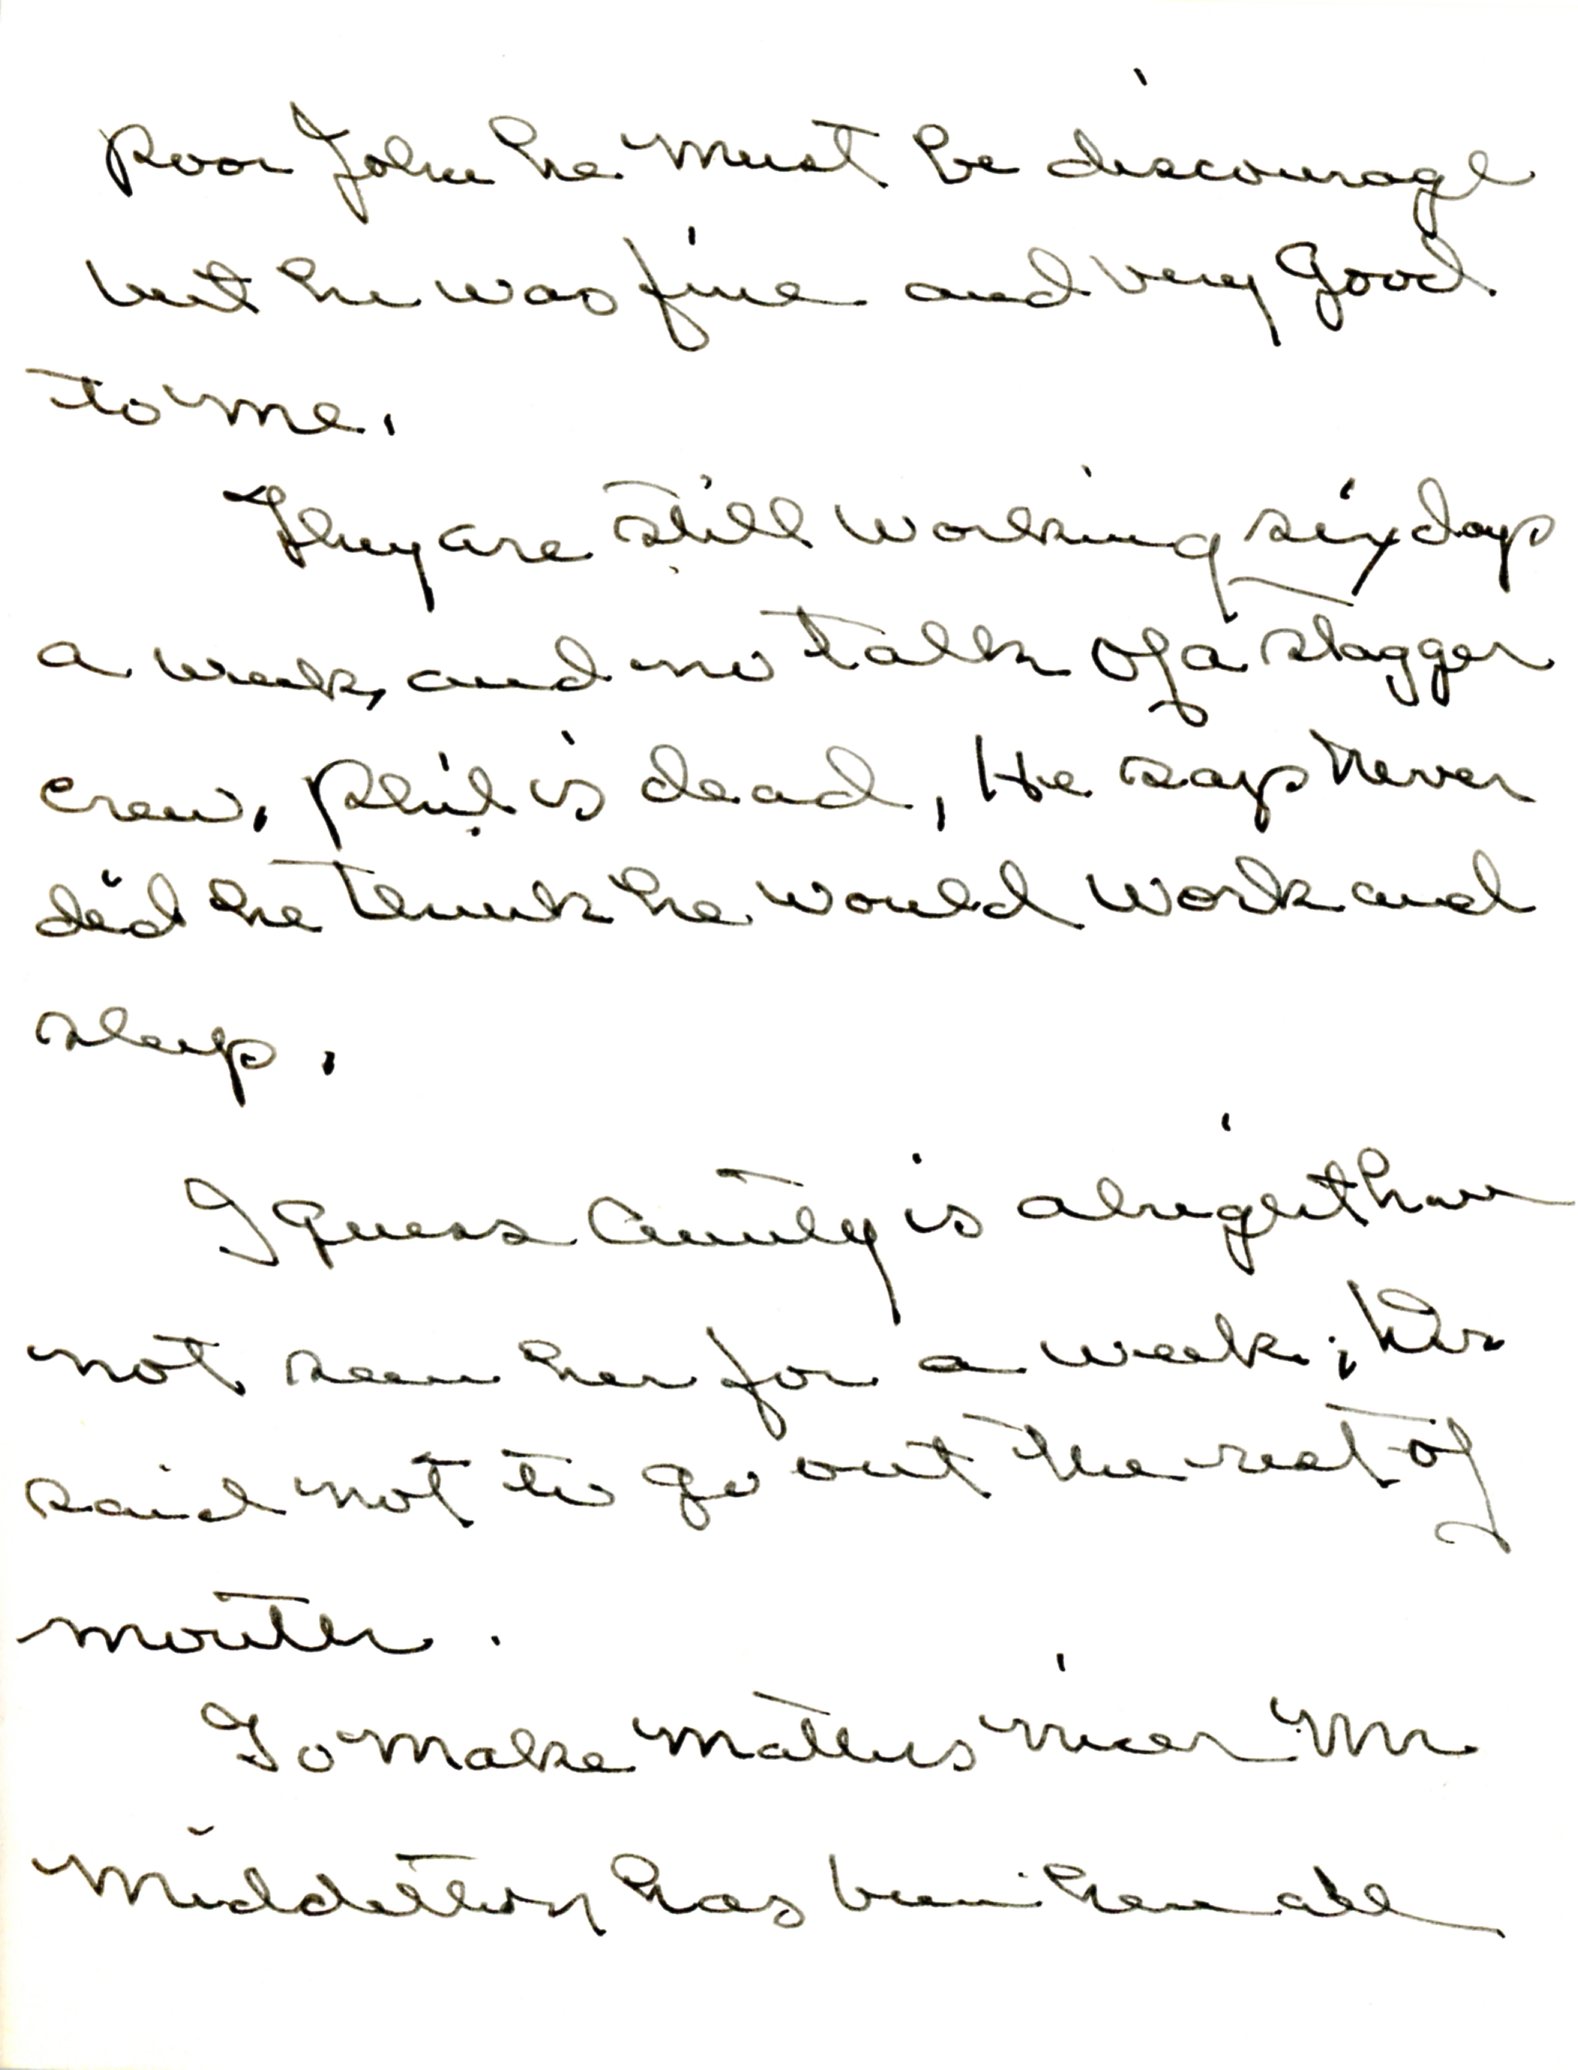 Poor John he must be discourage
but he was fine and very good
to me.
They are still working six days
a week, and no talk of a stagger
crew. Phil is dead, He says never
did he think he would work and
sleep.
I guess Aunty is alright have
not seen her for a week;
said not to go out the rest of
month.
To make matters nicer Mr
Middleton has been here all